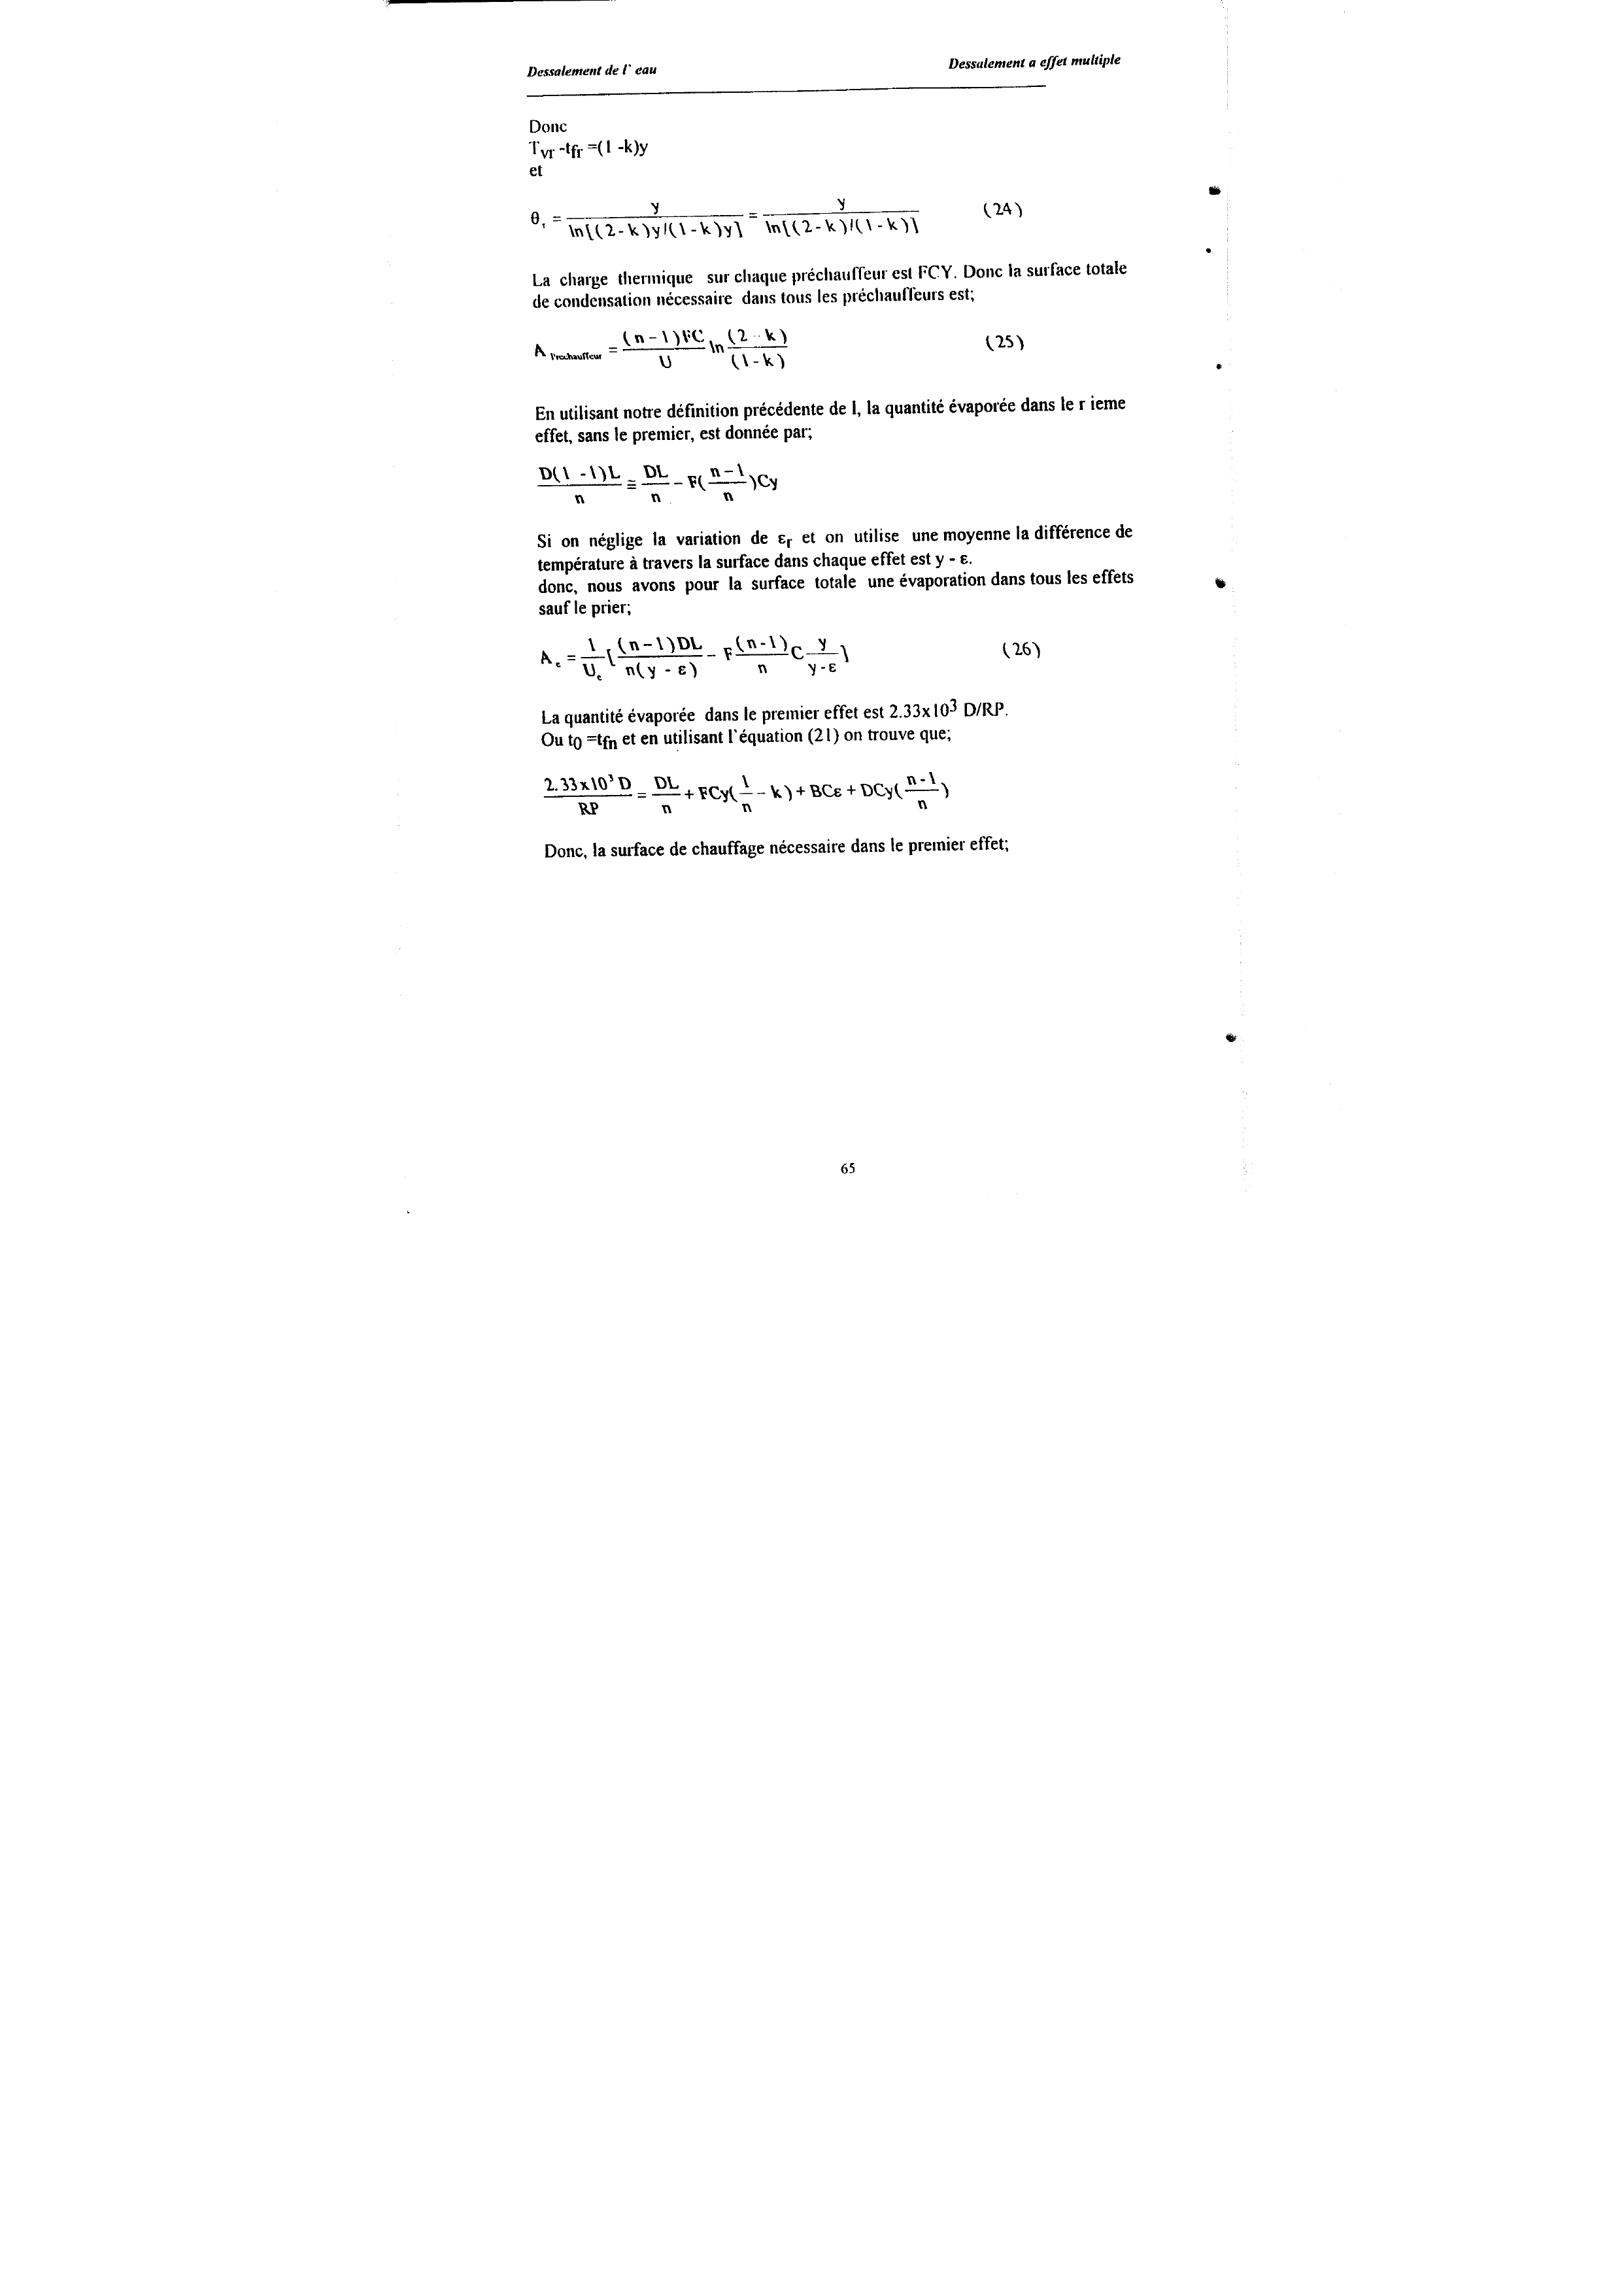 Dessalement de l' eau
Dessalement a effet multiple
Donc
Tvr -tfr =(1 -k)y
et
θr = y / ln[(2-k)y/(1-k)y] = y / ln[(2-k)/(1-k)] (24)
La charge thermique sur chaque préchauffeur est FCY. Donc la surface totale
de condensation nécessaire dans tous les préchauffeurs est;
A Prechauffeur = (n-1)FC / U ln (2-k) / (1-k) (25)
En utilisant notre définition précédente de l, la quantité évaporée dans le r ieme
effet, sans le premier, est donnée par;
D(1 -1)L / n = DL / n - F( n-1 / n )Cy
Si on néglige la variation de εr et on utilise une moyenne la différence de
température à travers la surface dans chaque effet est y - ε.
donc, nous avons pour la surface totale une évaporation dans tous les effets
sauf le prier;
Ae = 1 / Ue ( (n-1)DL / n(y - ε) - F (n-1) / n C y / y-ε ) (26)
La quantité évaporée dans le premier effet est 2.33x10³ D/RP.
Ou t0 =tfn et en utilisant l'équation (21) on trouve que;
2.33x10³ D / RP = DL / n + FCy( 1 / n - k) + BCε + DCy( n-1 / n )
Donc, la surface de chauffage nécessaire dans le premier effet;
65